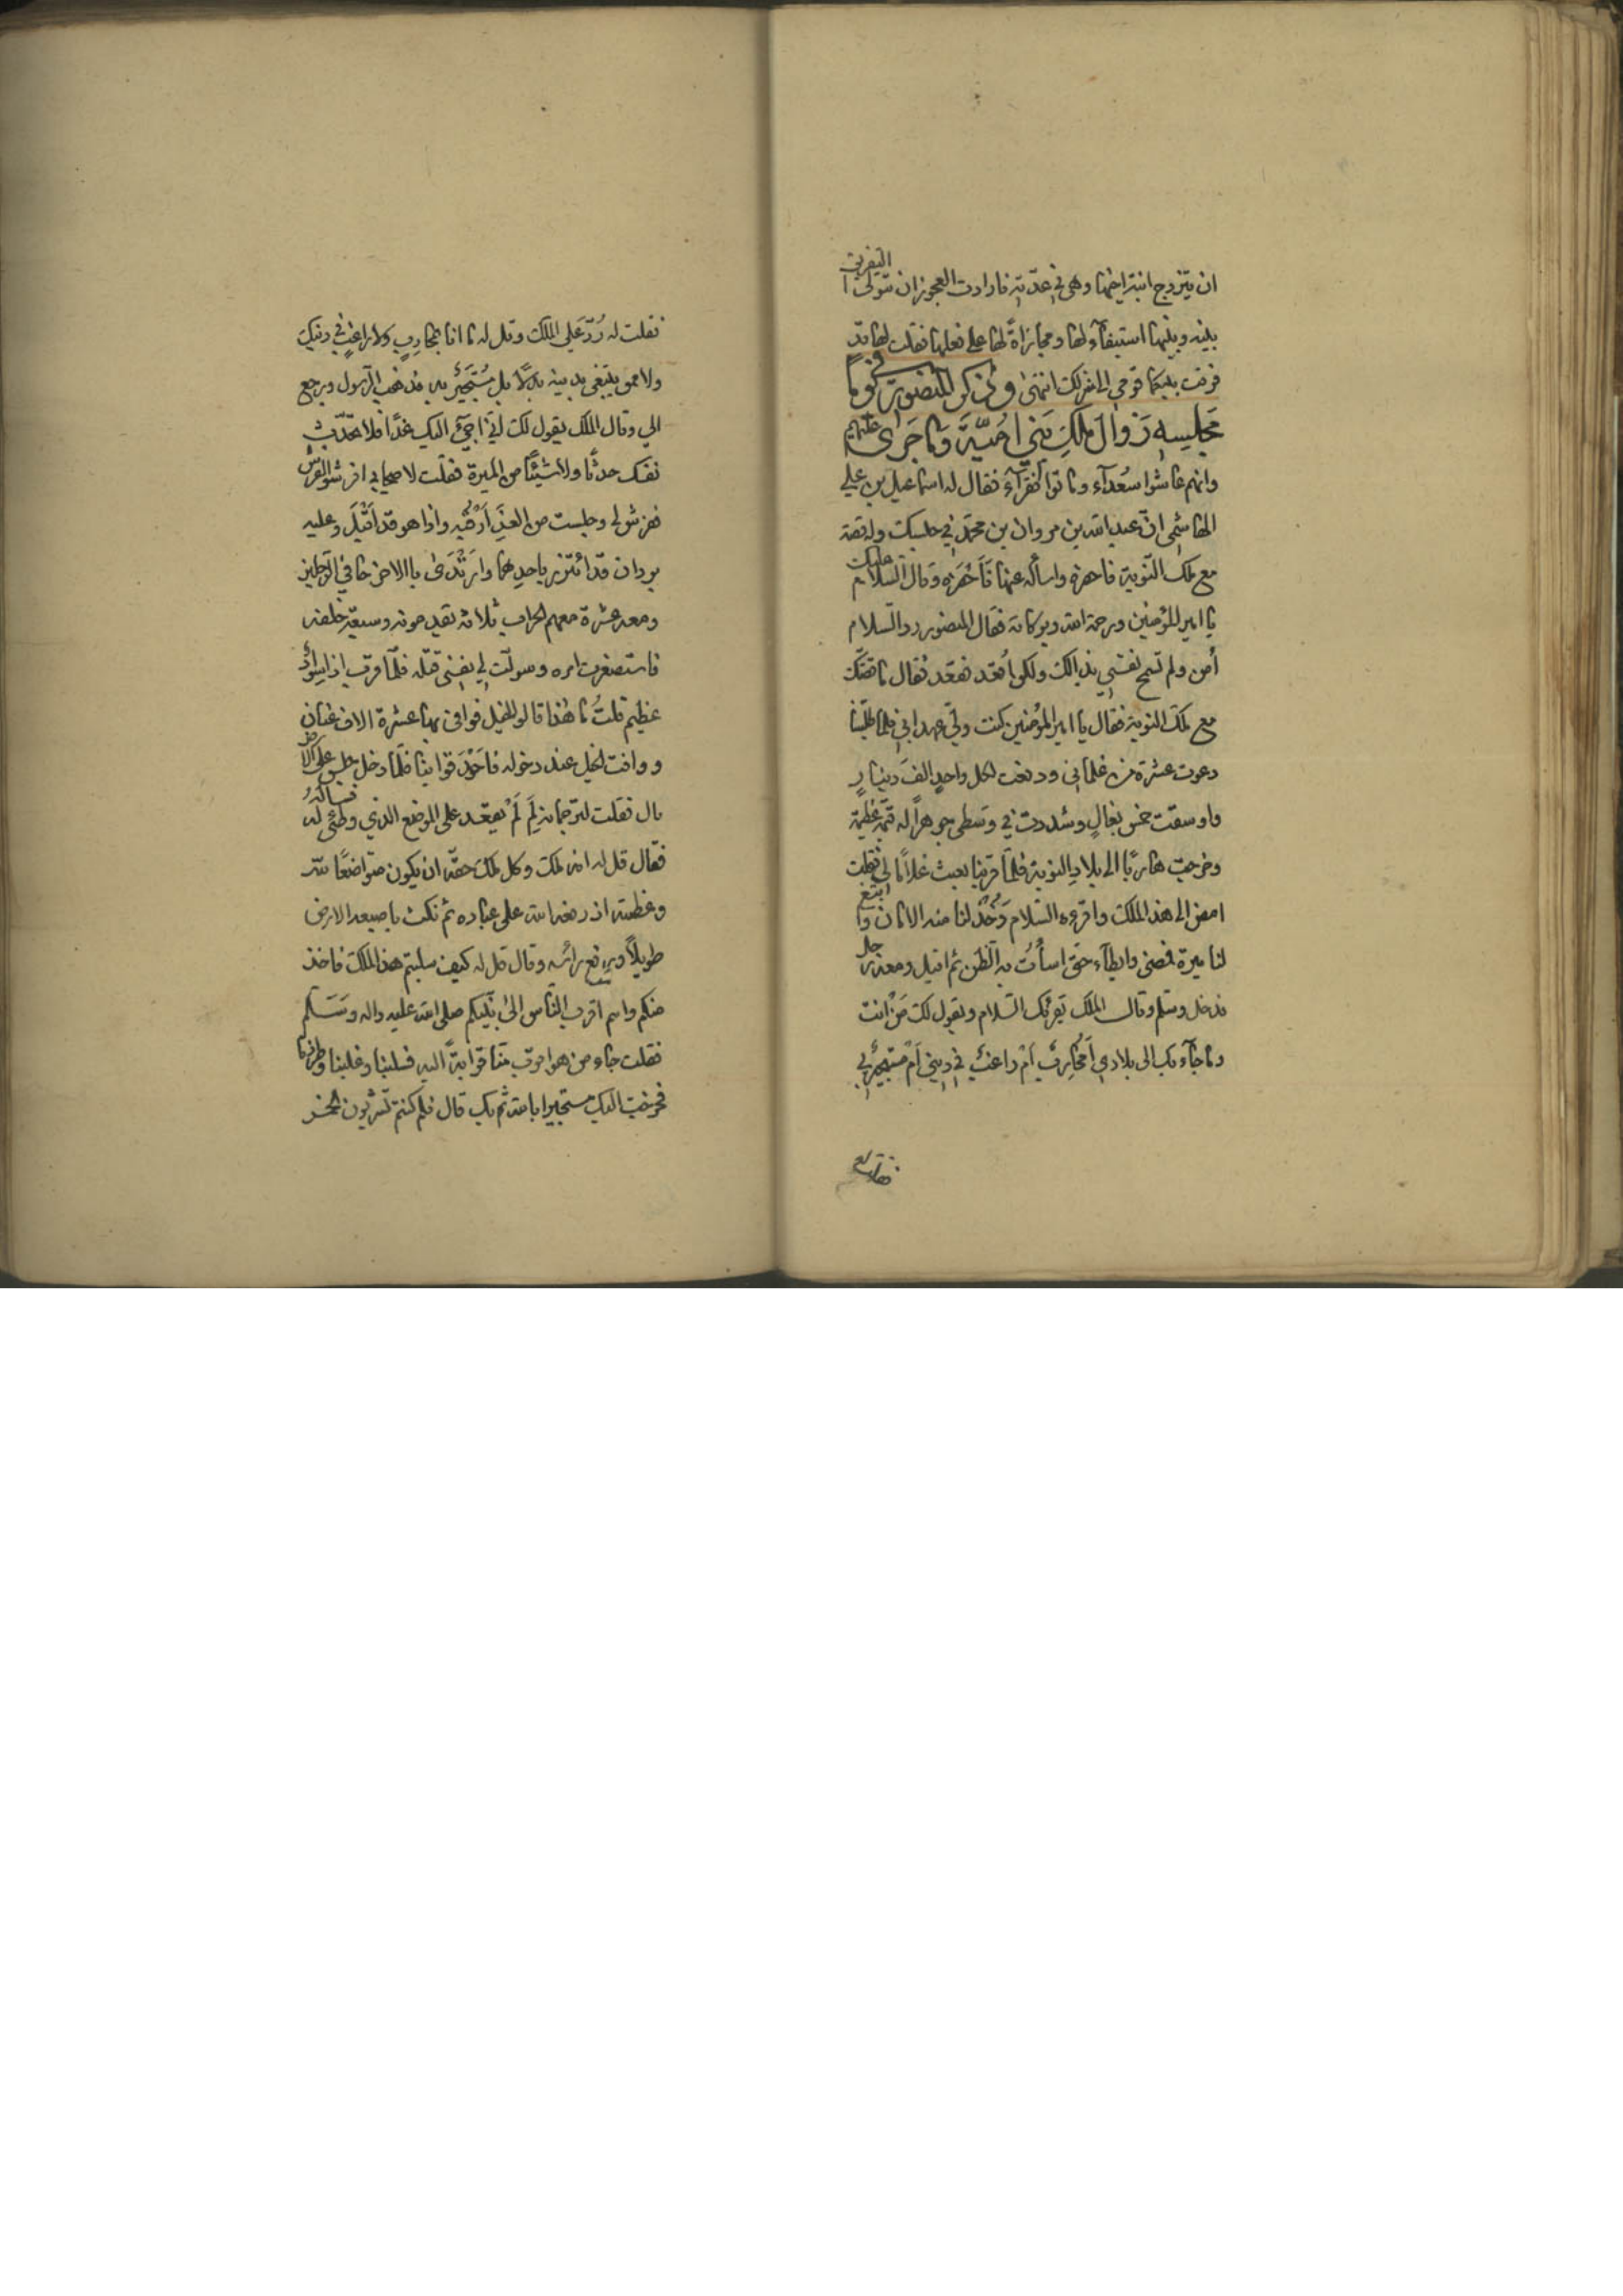 ان يتزوج ابنة اخيها وهى في عدّته فارادت العجوز ان تتولى التفريق
بينه وبينها استيفآء لها ومجازاةً لها على فعلها فقلت لها قد
فرقت بينكما قومي الى منزلك انتهى وذكر المنصور في يومًا
مجلسه زوال ملك بني اميّة وما جرى عليهم
وانهم عاشوا سعدآء وماتوا فقرآء فقال له اسماعيل بن علي
الهاشمي انّ عبد الله بن مروان بن محمّد في حبسك وله قصة
مع ملك النّوبة فاحضره واسأله عنها فَأحْضَره وَقال السّلام عليك
يا امير المؤمنين ورحمة الله وبركاته فقال المنصور ردّ السّلام
أمن ولم تسمح نفسي بذالك ولكن اُقعُد فقعَد فقال ما قصّتك
مع ملك النوبة فقال يا امير المؤمنين كنت وليّ عهد ابي فلما طلبنا
دعوت عشرة من غلماني ودفعت لكل واحدٍ الفَ دينارٍ
واوسقت خمس بغالٍ وشددت في وَسطى جوهرًا له قيمة عظيمة
وخرجت هاربًا الى بلاد النوبة فلمّا قربنا بعثت غلامًا لي فقلت
امض الى هذا الملك واقرءه السّلام وَخُذْ لنا منه الامان وابتَع
لنا ميرة فمضى وابطآء حتى اسأْتُ به الظّن ثم اقبل ومعه رجل
فدخل وسلّم وقال الملك يقرئك السّلام ويقول لك مَنْ انت
وما جآء بك الى بلادي أَمُحُارِبٌ اَمْ راغبٌ في ديني اَمْ مستجيرٌ بي
فقلت له
فقلت له رُدّ عَلى الملك وقل له ما انا بمحارِبٍ ولا راغبٍ في دينك
ولا ممن يبتغي بدينه بدلًا بل مُستَجيرٌ به فذهب الرّسول ورجع
الي وقال الملك يقول لك اني اجيءُ اليك غدًا فلا تحدّث
نفسك حدثًا ولا شيئًا من الميرة فقلت لاصحابي افرشوا الفرش
ففرش لي وجلست من الغدِ اَرْقُبه واذا هو قد اَقبَلَ وعليه
بردان قد ائتزر باحدِهما وارْتَدَى بالاخر حافي الرّجلين
ومعه عشرة معهم الحراب ثلاثة يقدمونه وسبعة خلفه
فاستصغرت امره وسولت لي نفسي قتله فلمّا قرب اذا بسوادٍ
عظيم قلتُ ما هٰذا قالوا الخيل فوافى بها عشرة الاف عنان
ووافت الخيل عند دخوله فاَحْدَقوا بنا فلمّا دخل جلس على الارض
قال فقلت لترجمانه لِمَ لَمْ يقعُد على الموضع الذي وطئ له فسأله
فقال قل له انه ملك وكل ملك حقّه ان يكون متواضعًا لله
وعظمته اذ رفعه الله على عباده ثم نكث باصبعه الارض
طويلًا ورفع رأسه وقال قل له كيف سلبتم هذا الملك فاخذ
منكم وانتم اقرب النّاس الى نبيّكم صلى الله عليه واله وَسَلّم
فقلت جاء من هو اقرب منّا قرابةً اليه فسلبنا وغلبنا وطردنا
فخرجت اليك مستجيرا بالله ثم بك قال فلم كنتم تشربون الخمر